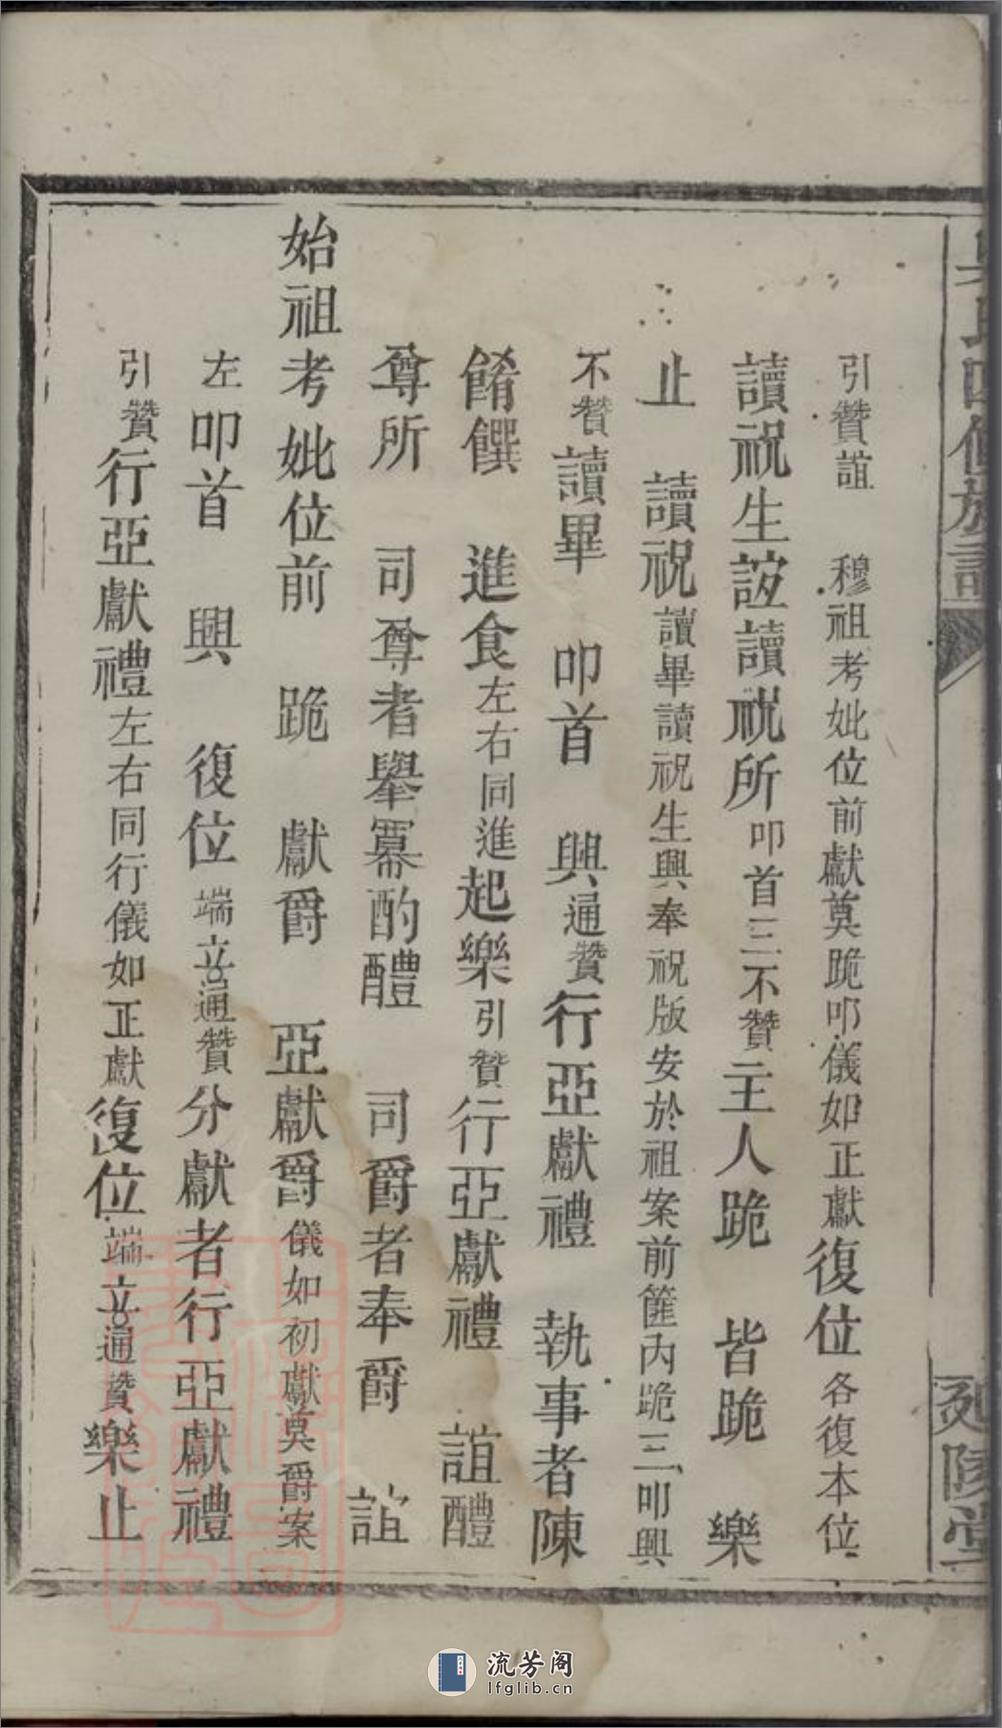 吳氏四修族譜
延陵堂
引贊誼　穆祖考妣位前獻奠跪叩儀如正獻復位各復本位
讀祝生誼讀祝所叩首三不贊主人跪　皆跪　樂
止　讀祝讀畢讀祝生興奉祝版安於祖案前篚內跪三叩興
不贊讀畢　叩首　興通贊行亞獻禮　執事者陳
餚饌　進食左右同進起樂引贊行亞獻禮　誼醴
尊所　司尊者舉冪酌醴　司爵者奉爵　誼
始祖考妣位前　跪　獻爵　亞獻爵儀如初獻奠爵案
左叩首　興　復位端立通贊分獻者行亞獻禮
引贊行亞獻禮左右同行儀如正獻復位端立通贊樂止
流芳阁
lfglib.cn